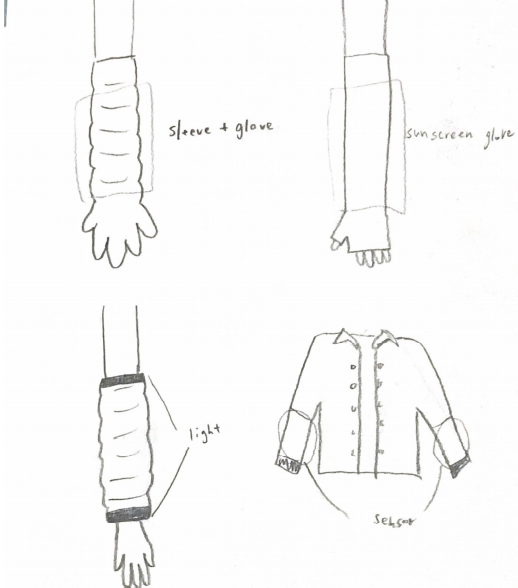 sleeve + glove
sunscreen glove
light
sensor